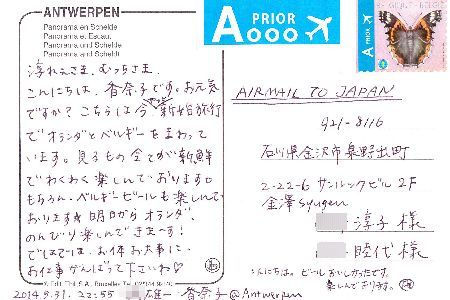 ANTWERPEN
Panorama en Schelde
Panorama et Escaut
Panorama und Schelde
Panorama and Scheldt
淳れえさま、むっちさま、
こんにちは、香奈子です。お元気
ですか? こちらは今、新婚旅行
でオランダとベルギーをまわって
います。見るもの全てが新鮮
でわくわく楽しんでおります。
もちろん、ベルギービールも楽しんで
おります☆明日からオランダ、
のんびり楽しんできまーす!
ではでは、お体お大事に、
お仕事がんばって下さいね♡
X. Edit. THILL S.A., Bruxelles
2014.5.31. 22:55 雄一・香奈子@Antwerpen
A PRIOR
AIRMAIL TO JAPAN
921-8116
石川県金沢市泉野出町
2-22-6 サンルックビル 2F
金澤 syugen
淳子 様
睦代 様
こんにちは。ビールおいしかったです。
楽しんでおります。